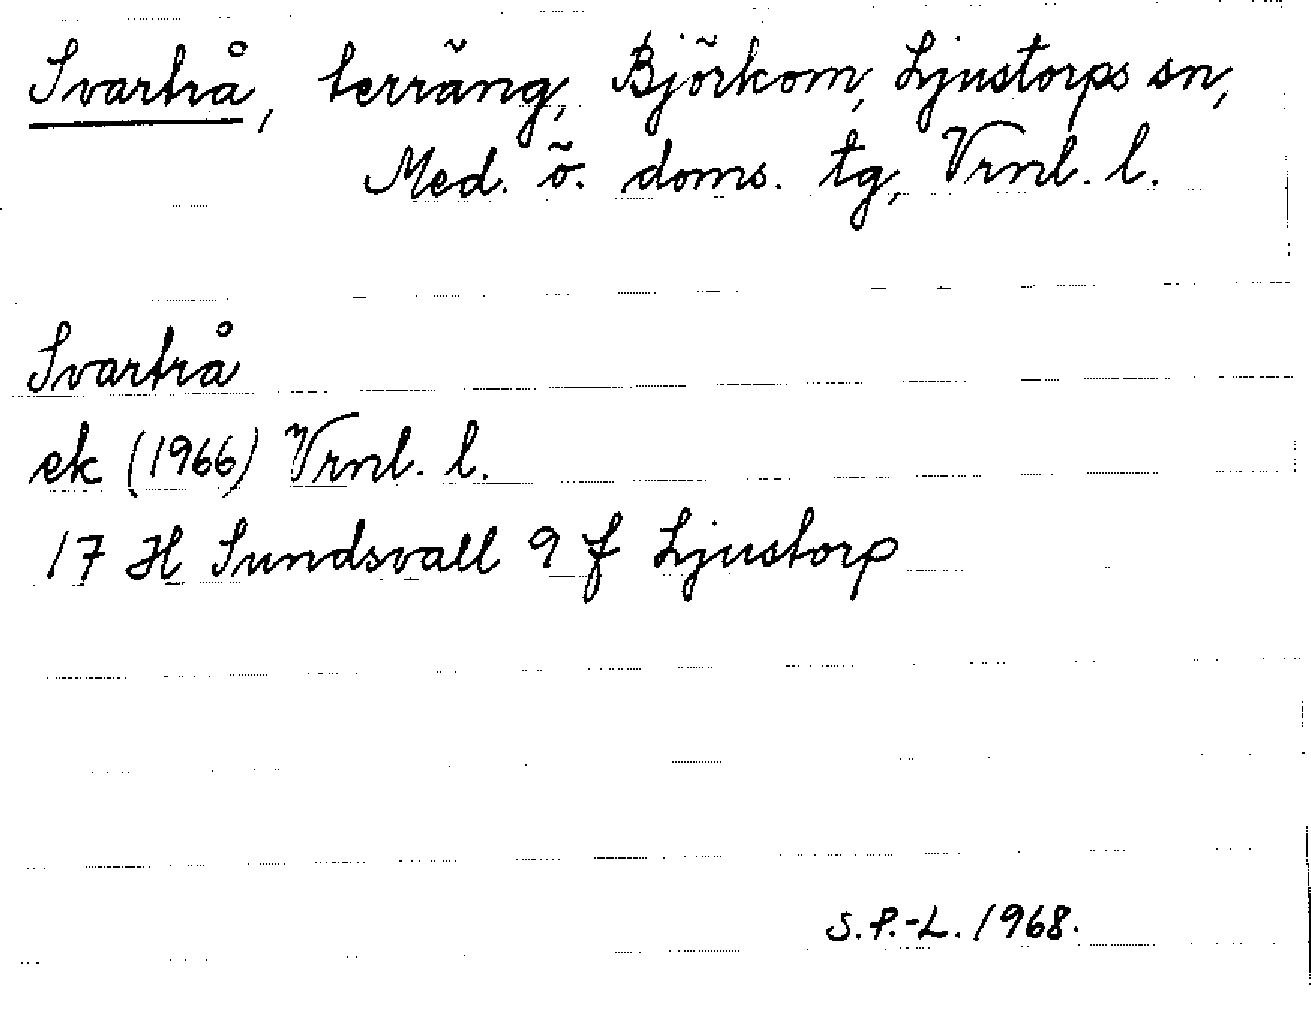 Svartrå, terräng, Björkom, Ljustorps sn,
Med. ö. doms. tg, Vrnl. l.
Svartrå
ek (1966) Vrnl. l.
17 H Sundsvall 9 f Ljustorp
S.P.-L. 1968.